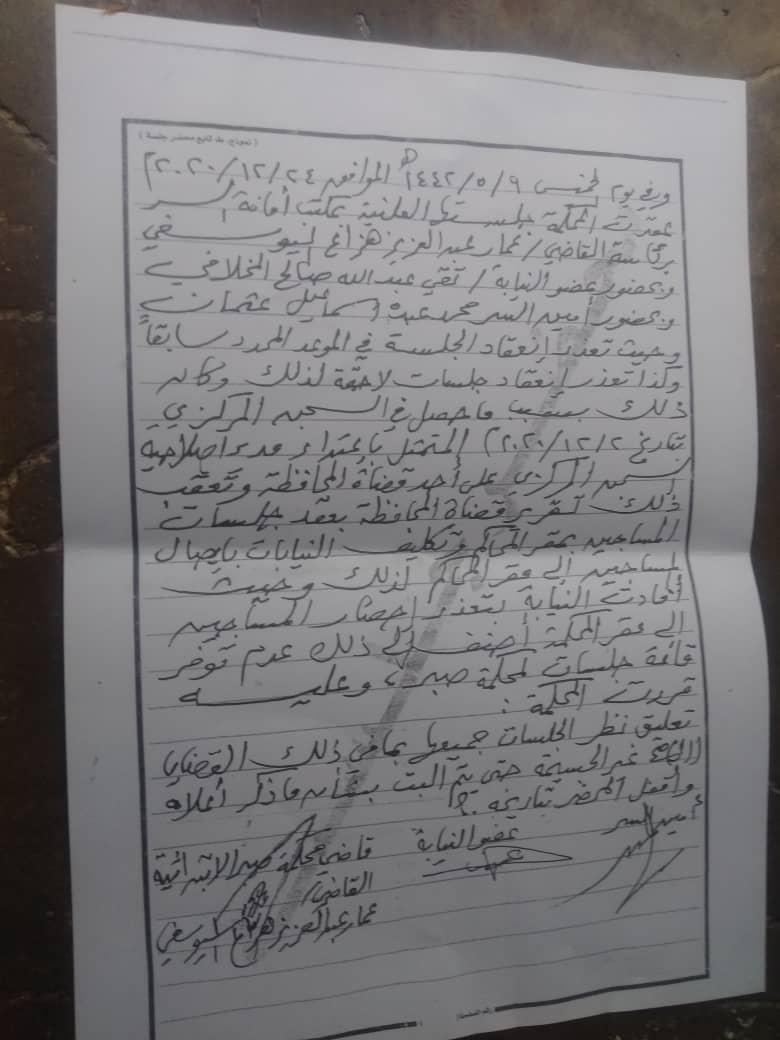 ( نموذج رقم تابع محضر جلسة )
وفي يوم الخميس ١٤٤٢/٥/٩هـ الموافق ٢٠٢٠/١٢/٢٤م
عقدت المحكمة جلستها العلنية بمكتب أمانة السر
برئاسة القاضي / عمار عبدالعزيز هزاع اليوسفي
وبحضور عضو النيابة / تقي عبدالله صالح المخلافي
وبحضور أمين السر محمد عبده اسماعيل عثمان
وحيث تعذر إنعقاد الجلسة في الموعد المحدد سابقاً
وكذا تعذر إنعقاد جلسات لاحقة لذلك وكان
ذلك بسبب ما حصل في السجن المركزي
بتاريخ ٢٠٢٠/١٢/٢م المتمثل بإعتداء مدير اصلاحية
السجن المركزي على أحد قضاة المحافظة وتعقب
ذلك تقرير قضاة المحافظة بعقد جلسات
المساجين بمقر المحاكم وتكليف النيابات بايصال
المساجين إلى مقر المحاكم لذلك وحيث
أفادت النيابة بتعذر إحضار المساجين
إلى مقر المحكمة أضف إلى ذلك عدم توفر
قاعة جلسات لمحكمة صبر، وعليه
قررت المحكمة :
تعليق نظر الجلسات جميعها بما في ذلك القضايا
غير الجسيمة حتى يتم البت بشأن ما ذكر أعلاه
وأقفل المحضر بتاريخه
أمين السر عضو النيابة قاضي محكمة صبر الابتدائية
القاضي/
عمار عبدالعزيز هزاع اليوسفي
رقم الصفحة (